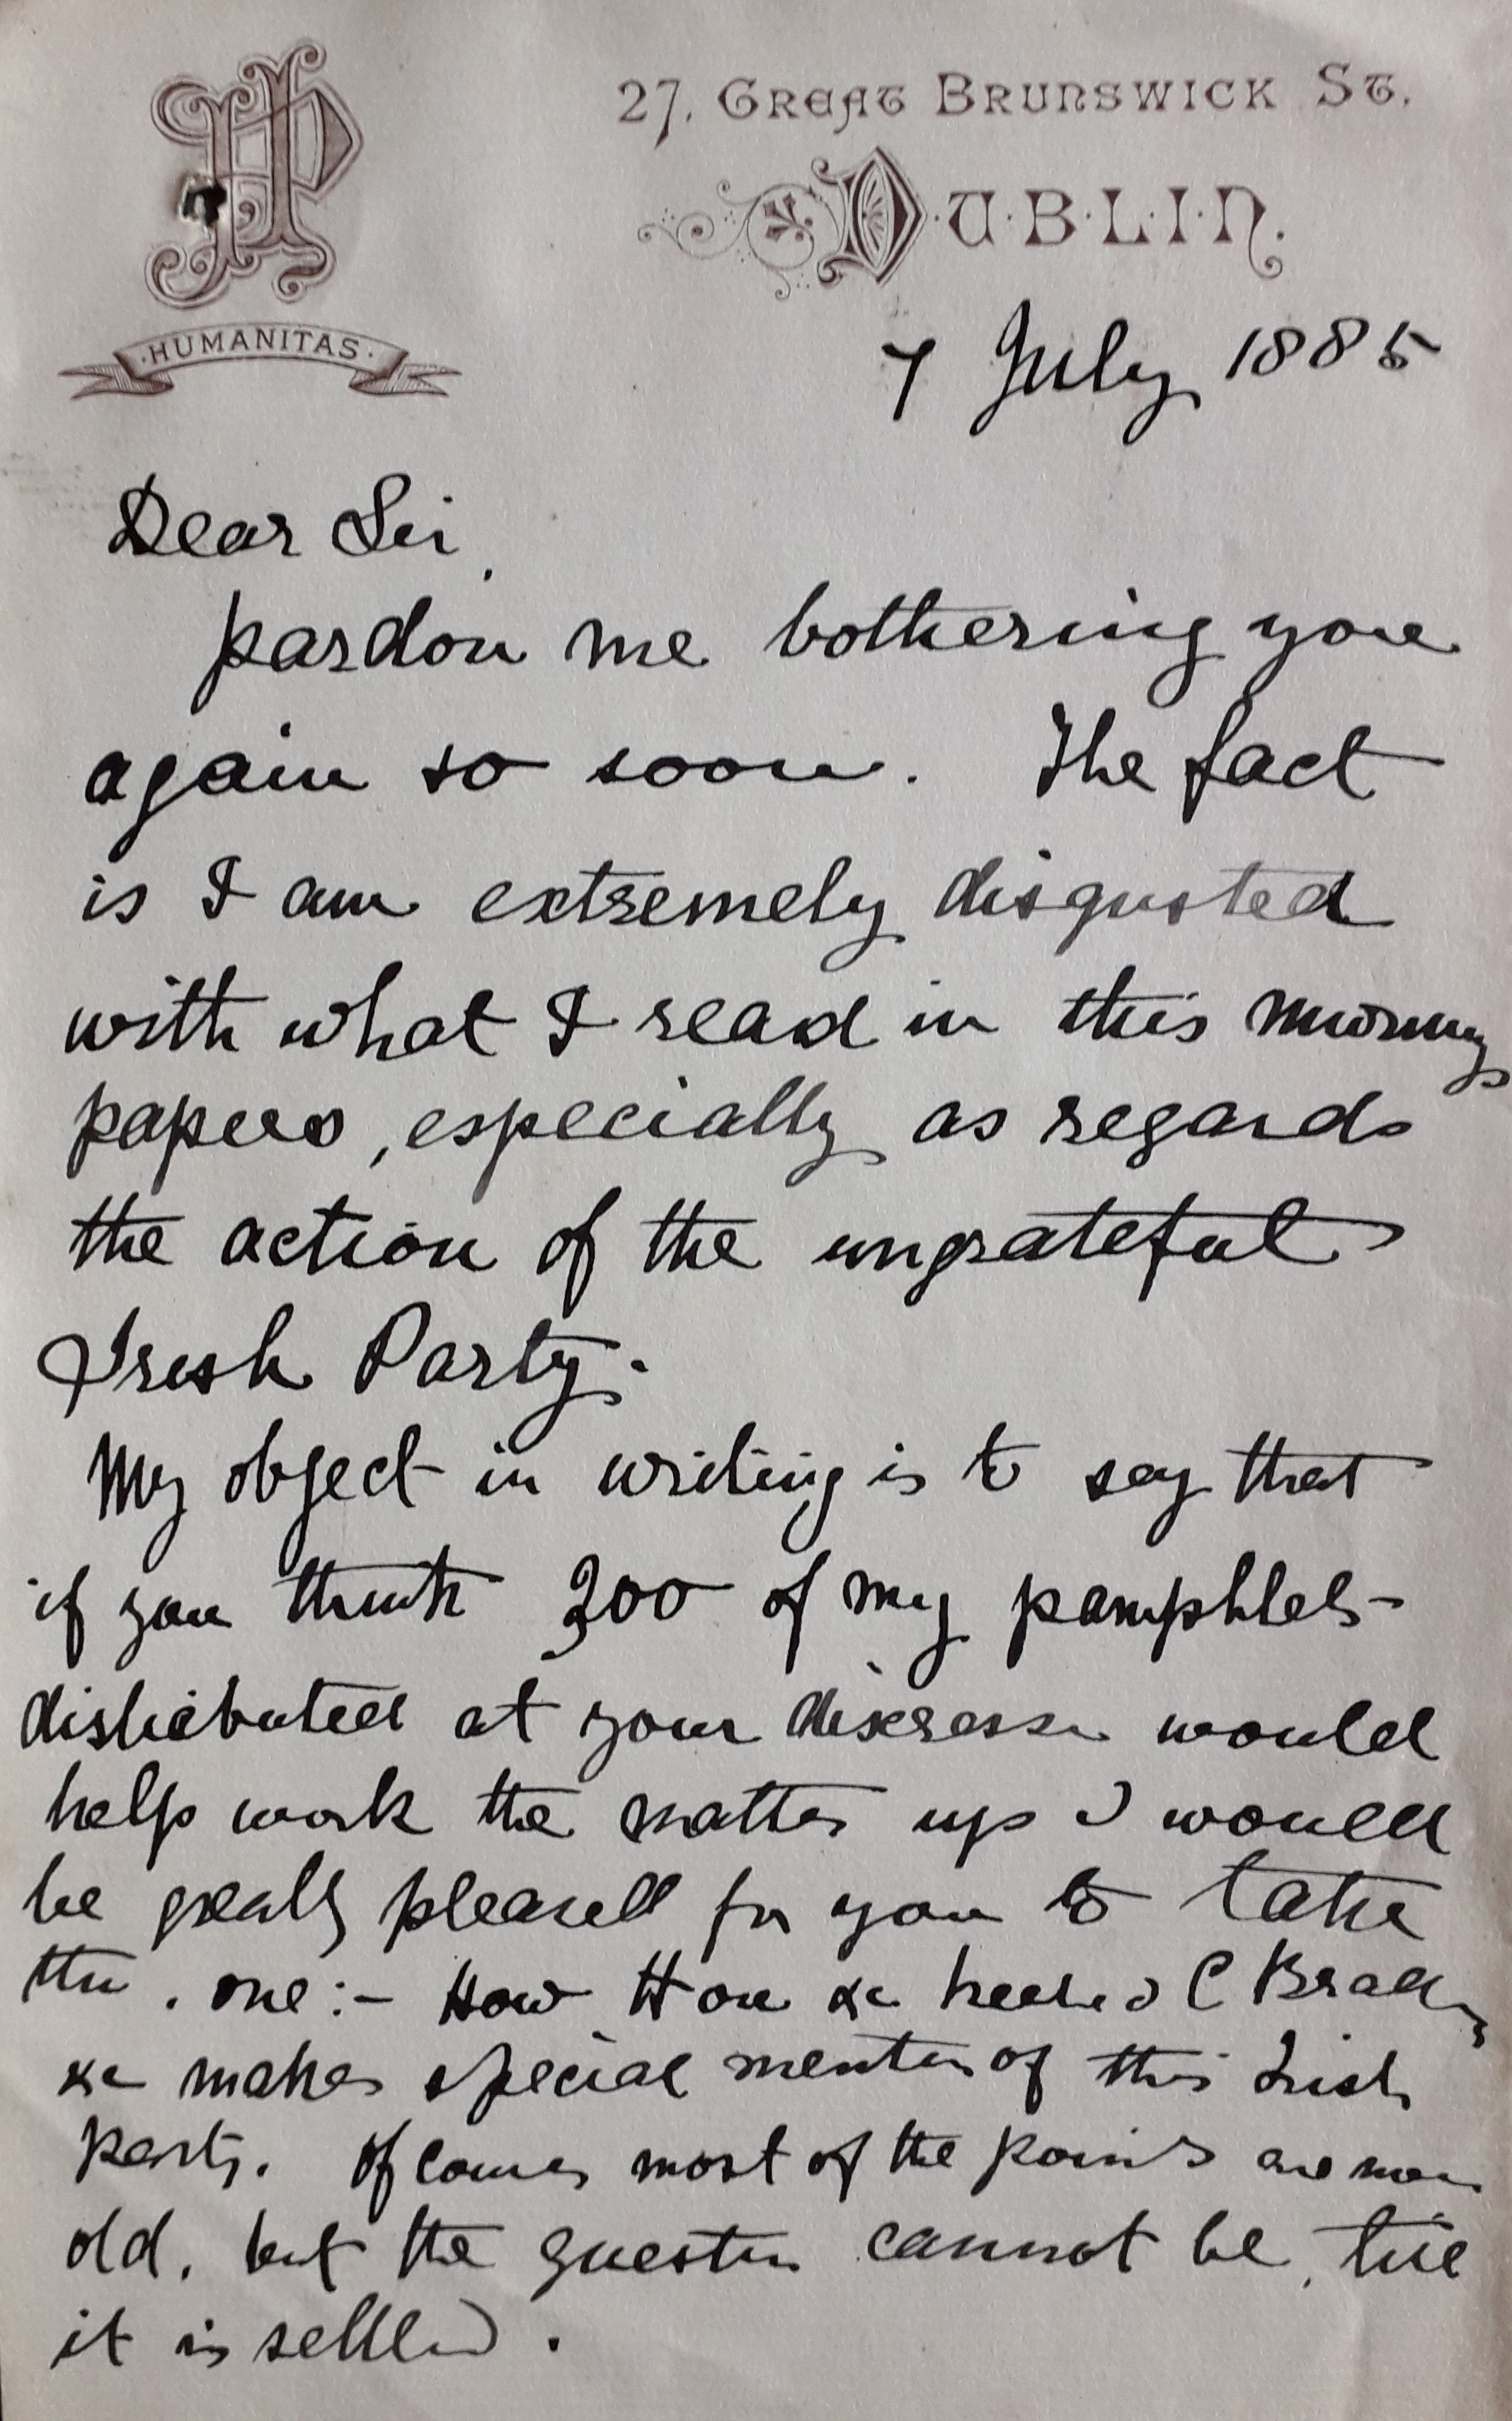 JP
27, GREAT BRUNSWICK ST.
DUBLIN.
HUMANITAS
7 July 1885
Dear Sir,
pardon me bothering you
again so soon. The fact
is I am extremely disgusted
with what I read in this morning
papers, especially as regards
the action of the ungrateful
Irish Party.
My object in writing is to say that
if you think 200 of my pamphlets
distributed at your discression would
help work the matter up I would
be greatly pleased for you to take
the . one:- How Hon &c C Bradl
&c makes special mention of this Irish
Party. Of course most of the points are now
old, but the question cannot be, till
it is settled.